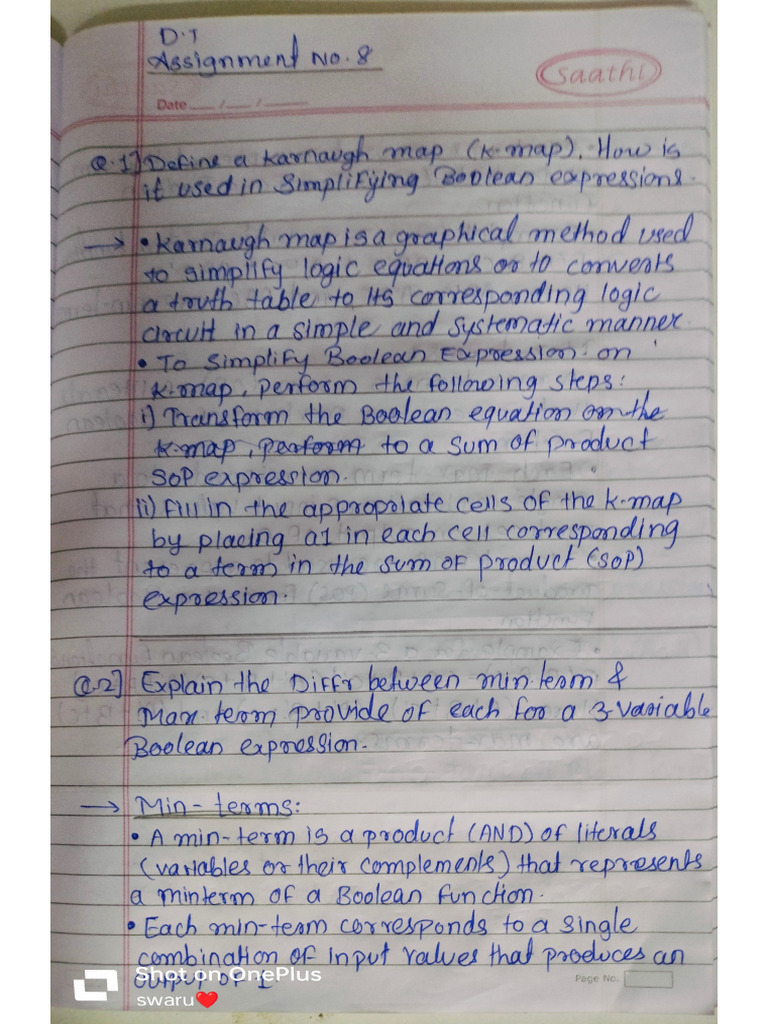 D.T
Assignment No. 8
saathi
Date __/__/____
Q.1] Define a Karnaugh map (K-map). How is
it used in Simplifying Boolean expressions.
→ • Karnaugh map is a graphical method used
to simplify logic equations or to converts
a truth table to its corresponding logic
circuit in a simple and systematic manner.
• To Simplify Boolean Expression on
K-map, perform the following steps:
i) Transform the Boolean equation on the
K-map, perform to a sum of product
SOP expression.
ii) Fill in the appropriate cells of the K-map
by placing a 1 in each cell corresponding
to a term in the sum of product (SOP)
expression.
Q.2] Explain the Diffr between min term &
Max term provide of each for a 3-variable
Boolean expression.
→ Min-terms:
• A min-term is a product (AND) of literals
(variables or their complements) that represents
a minterm of a Boolean function.
• Each min-term corresponds to a single
combination of input values that produces an
output of 1
Page No.
Shot on OnePlus
swaru❤️